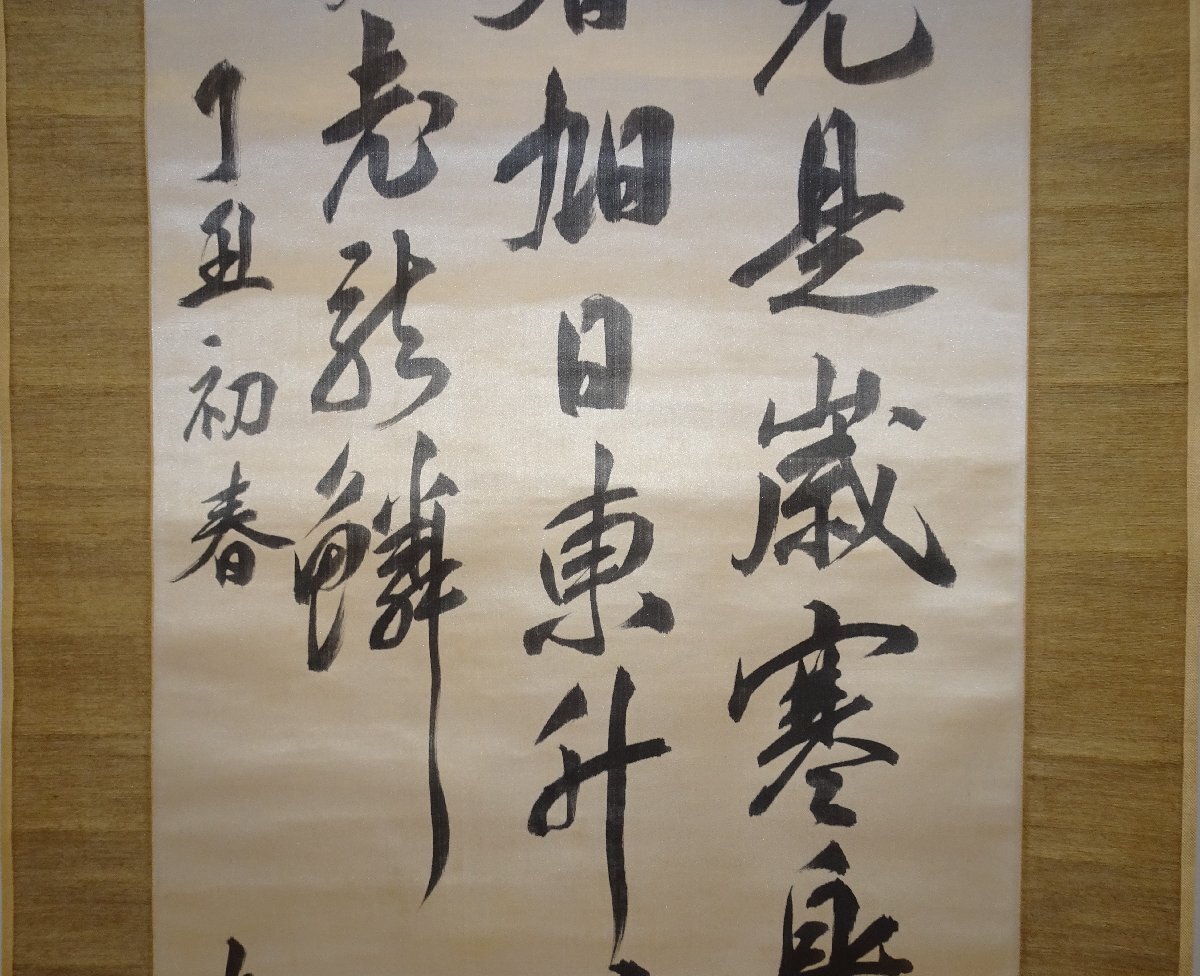 是歲寒
旭日東升
老龍鱗
丁丑初春